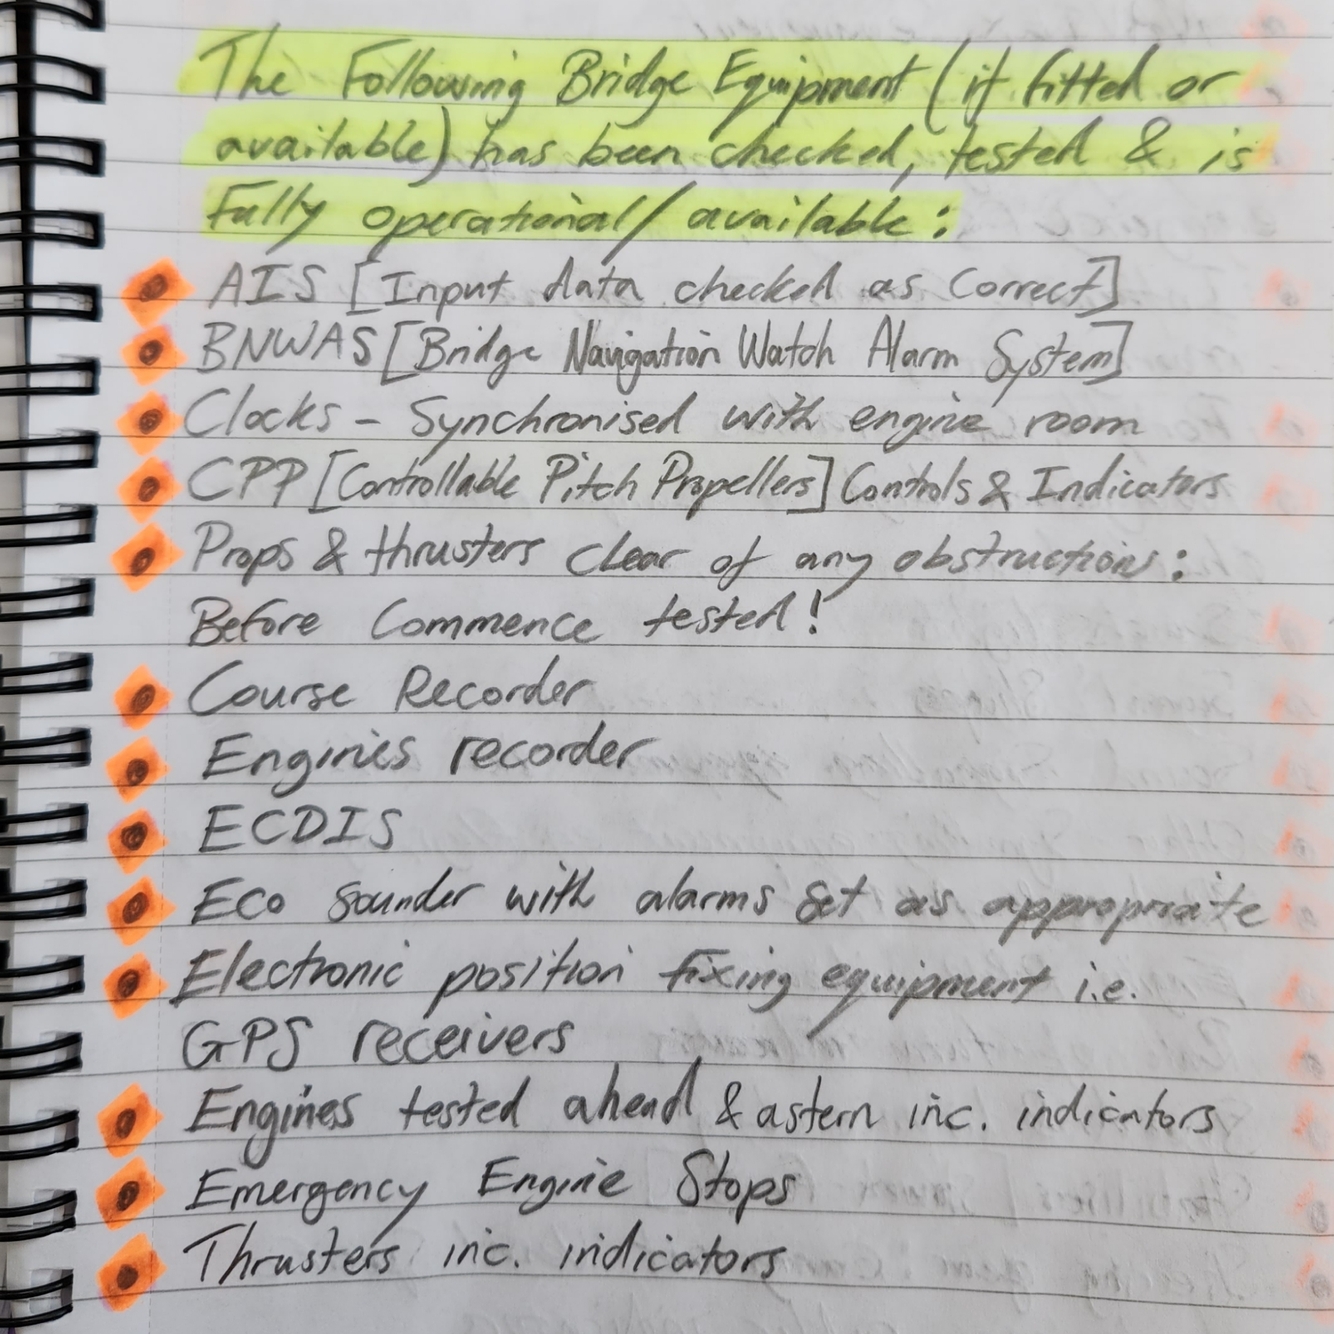 The Following Bridge Equipment (if fitted or
available) has been checked, tested & is
Fully operational/available:
AIS [Input data checked as Correct]
BNWAS [Bridge Navigation Watch Alarm System]
Clocks - Synchronised with engine room
CPP [Controllable Pitch Propellers] Controls & Indicators
Props & thrusters clear of any obstruction:
Before Commence tested!
Course Recorder
Engines recorder
ECDIS
Eco sounder with alarms set as appropriate
Electronic position fixing equipment i.e.
GPS receivers
Engines tested ahead & astern inc. indicators
Emergency Engine Stops
Thrusters inc. indicators